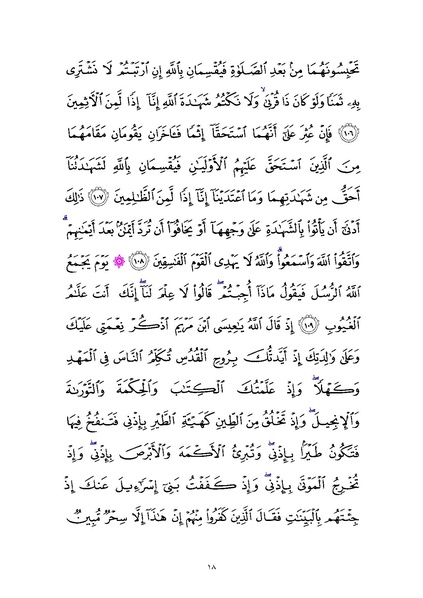 تَحْبِسُونَهُمَا مِنۢ بَعْدِ ٱلصَّلَوٰةِ فَيُقْسِمَانِ بِٱللَّهِ إِنِ ٱرْتَبْتُمْ لَا نَشْتَرِى
بِهِۦ ثَمَنًا وَلَوْ كَانَ ذَا قُرْبَىٰ ۙ وَلَا نَكْتُمُ شَهَٰدَةَ ٱللَّهِ إِنَّآ إِذًا لَّمِنَ ٱلْءَاثِمِينَ
١٠٦ فَإِنْ عُثِرَ عَلَىٰٓ أَنَّهُمَا ٱسْتَحَقَّآ إِثْمًا فَـَٔاخَرَانِ يَقُومَانِ مَقَامَهُمَا
مِنَ ٱلَّذِينَ ٱسْتَحَقَّ عَلَيْهِمُ ٱلْأَوْلَيَٰنِ فَيُقْسِمَانِ بِٱللَّهِ لَشَهَٰدَتُنَآ
أَحَقُّ مِن شَهَٰدَتِهِمَا وَمَا ٱعْتَدَيْنَآ إِنَّآ إِذًا لَّمِنَ ٱلظَّٰلِمِينَ ١٠٧ ذَٰلِكَ
أَدْنَىٰٓ أَن يَأْتُوا۟ بِٱلشَّهَٰدَةِ عَلَىٰ وَجْهِهَآ أَوْ يَخَافُوٓا۟ أَن تُرَدَّ أَيْمَٰنٌۢ بَعْدَ أَيْمَٰنِهِمْ ۗ
وَٱتَّقُوا۟ ٱللَّهَ وَٱسْمَعُوا۟ ۗ وَٱللَّهُ لَا يَهْدِى ٱلْقَوْمَ ٱلْفَٰسِقِينَ ١٠٨ ۞ يَوْمَ يَجْمَعُ
ٱللَّهُ ٱلرُّسُلَ فَيَقُولُ مَاذَآ أُجِبْتُمْ ۖ قَالُوا۟ لَا عِلْمَ لَنَآ ۖ إِنَّكَ أَنتَ عَلَّٰمُ
ٱلْغُيُوبِ ١٠٩ إِذْ قَالَ ٱللَّهُ يَٰعِيسَى ٱبْنَ مَرْيَمَ ٱذْكُرْ نِعْمَتِى عَلَيْكَ
وَعَلَىٰ وَٰلِدَتِكَ إِذْ أَيَّدتُّكَ بِرُوحِ ٱلْقُدُسِ تُكَلِّمُ ٱلنَّاسَ فِى ٱلْمَهْدِ
وَكَهْلًا ۖ وَإِذْ عَلَّمْتُكَ ٱلْكِتَٰبَ وَٱلْحِكْمَةَ وَٱلتَّوْرَىٰةَ
وَٱلْإِنجِيلَ ۖ وَإِذْ تَخْلُقُ مِنَ ٱلطِّينِ كَهَيْـَٔةِ ٱلطَّيْرِ بِإِذْنِى فَتَنفُخُ فِيهَا
فَتَكُونُ طَيْرًۢا بِإِذْنِى ۖ وَتُبْرِئُ ٱلْأَكْمَهَ وَٱلْأَبْرَصَ بِإِذْنِى ۖ وَإِذْ
تُخْرِجُ ٱلْمَوْتَىٰ بِإِذْنِى ۖ وَإِذْ كَفَفْتُ بَنِىٓ إِسْرَٰٓءِيلَ عَنكَ إِذْ
جِئْتَهُم بِٱلْبَيِّنَٰتِ فَقَالَ ٱلَّذِينَ كَفَرُوا۟ مِنْهُمْ إِنْ هَٰذَآ إِلَّا سِحْرٌ مُّبِينٌ
١٨